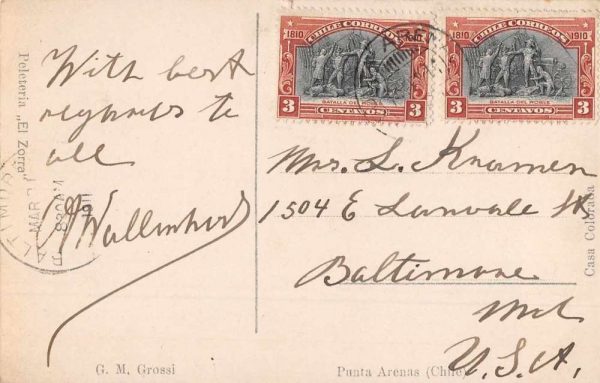 With best
regards to
all
Peleteria „El Zorra"
MAR
1911
CHILE CORREOS
1810 1910
BATALLA DEL ROBLE
3 CENTAVOS 3
CHILE CORREOS
1810 1910
BATALLA DEL ROBLE
3 CENTAVOS 3
Mrs. L. Kramer
1504 E Lanvale St
Baltimore
Md
U.S.A.
Casa Colorada
G. M. Grossi
Punta Arenas (Chile)